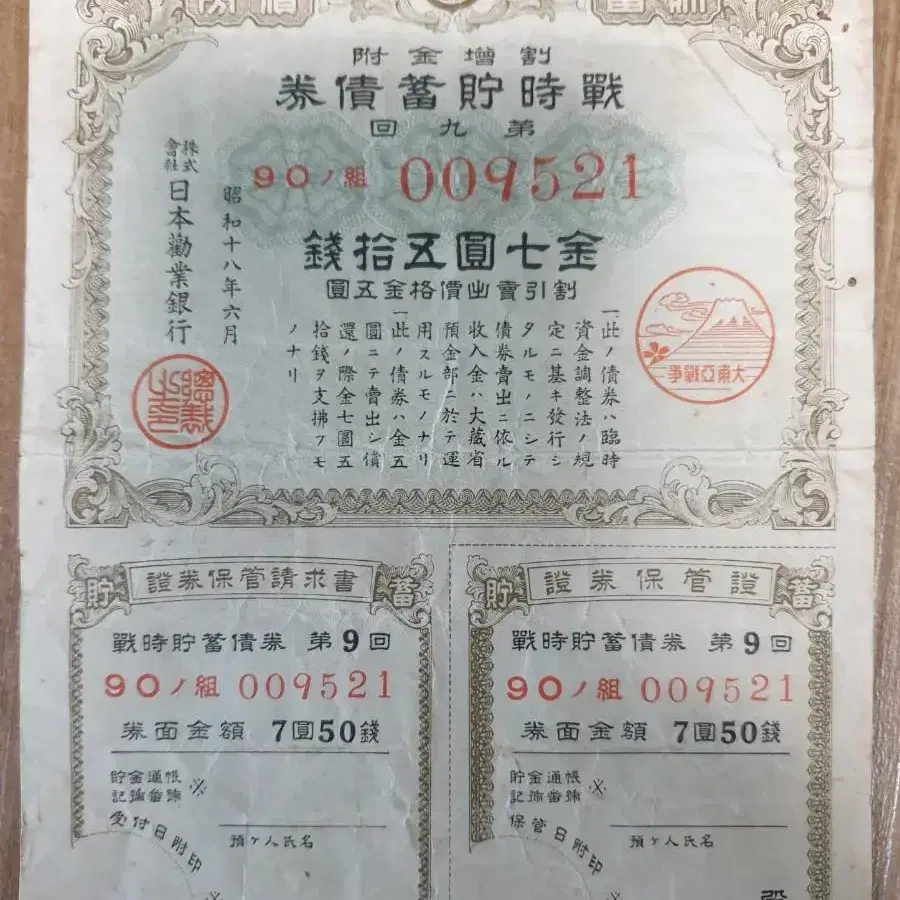 割增金附
戰時貯蓄債券
第九回
90ノ組 009521
金七圓五拾錢
割引賣出價格金五圓
大東亞戰爭
一、此ノ債券ハ臨時
資金調整法ノ規
定ニ基キ發行シ
タルモノニシテ
債券賣出ニ依ル
收入金ハ大藏省
預金部ニ於テ運
用スルモノナリ
一、此ノ債券ハ金五
圓ニテ賣出シ償
還ノ際金七圓五
拾錢ヲ支拂フモ
ノナリ
昭和十八年六月
株式會社
日本勸業銀行
總裁之印
貯 證券保管請求書 蓄
戰時貯蓄債券 第9回
90ノ組 009521
券面金額 7圓50錢
貯金通帳
記號番號 ※
受付日附印
預ケ人氏名
貯 證券保管證 蓄
戰時貯蓄債券 第9回
90ノ組 009521
券面金額 7圓50錢
貯金通帳
記號番號 ※
保管日附印
預ケ人氏名